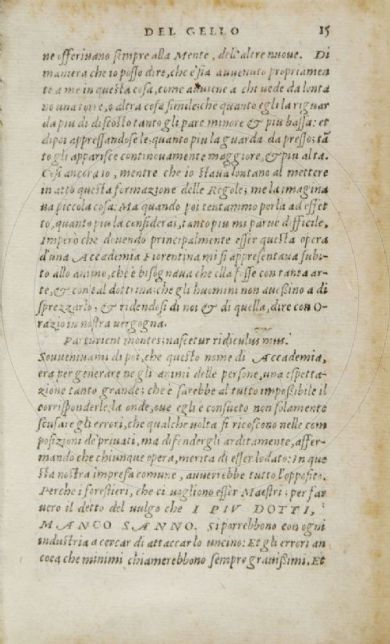 DEL GELLO 15
ne offerivano sempre alla Mente, dell'altre nuove. Di
maniera che io posso dire, che e' sia avvenuto propriamen
te a me in questa cosa, come avviene a chi vede da lonta
no una torre, o altra cosa simile: che quanto egli la riguar
da piu di discosto tanto gli pare minore & piu bassa: et
dipoi appressandosele, quanto piu la guarda da presso; tā
to gli apparisce continovamente maggiore, & piu alta.
Cosi ancora io, mentre che io stava lontano al mettere
in atto questa formazione delle Regole; me la imagina
va piccola cosa: Ma quando poi tentammo per la ad effet
to, quanto piu la considerai, tanto piu mi parve difficile.
Imperò che dovendo principalmente esser questa opera
d'una Accademia Fiorentina mi si appresentava subi-
to allo animo, ch'e bisognava che ella fosse con tanta ar-
te, & con tal dottrina che gli huomini non avessino a di
sprezzarlo; & ridendosi di noi & di quella, dire con O-
razio in nostra vergogna.
Parturient montes; nascetur ridiculus mus.
Sovvenivami di poi, che questo nome di Accademia,
era per generare ne gli animi delle persone, una espetta-
zione tanto grande; che e' sarebbe al tutto impossibile il
corrisponderle; la onde, ove egli è consueto non solamente
scusare gli errori, che qualche volta si ricoprono nelle com
posizioni de' privati, ma difendergli arditamente, affer-
mando che chiunque opera, merita di esser lodato: In que
sta nostra impresa comune, avverrebbe tutto l'opposito.
Perche i forestieri, che ci vogliono esser Maestri; per far
vero il detto del vulgo che I PIV DOTTI,
MANCO SANNO. Si porrebbono con ogni
industria a cercar di attaccarlo uncino: Et gli errori an
cora che minimi chiamerebbono sempre gravissimi. Et